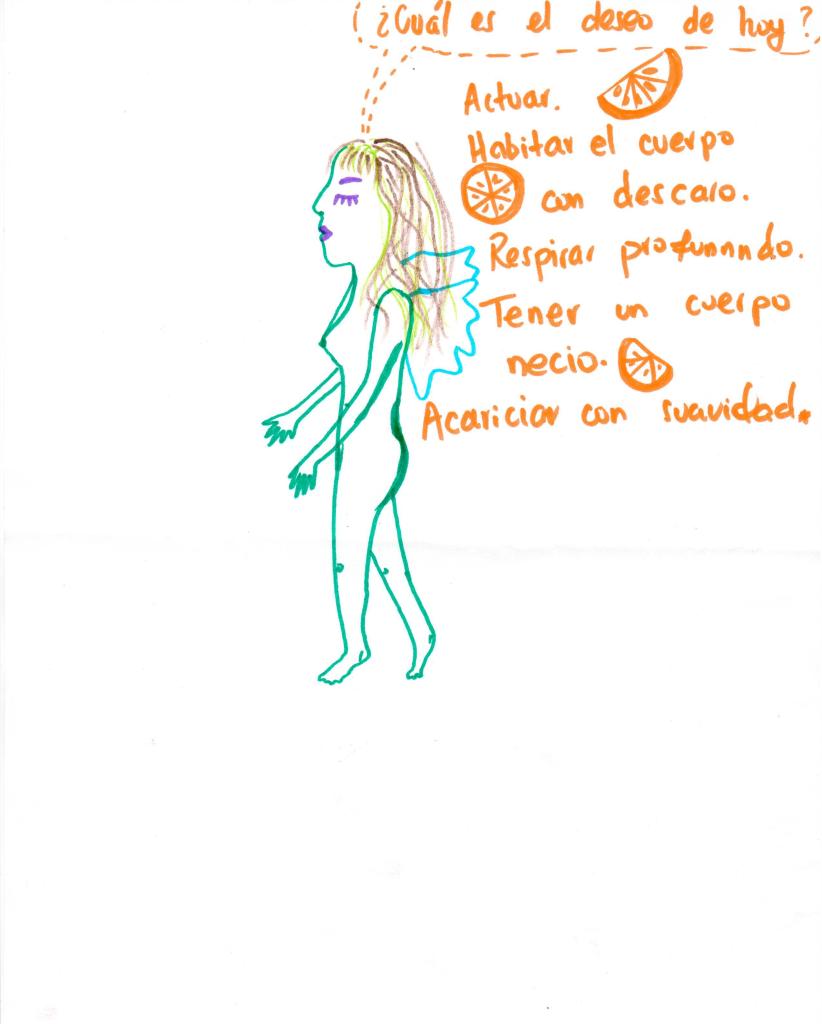 ¿Cuál es el deseo de hoy?
Actuar.
Habitar el cuerpo
con descaro.
Respirar profunnndo.
Tener un cuerpo
necio.
Acariciar con suavidad.